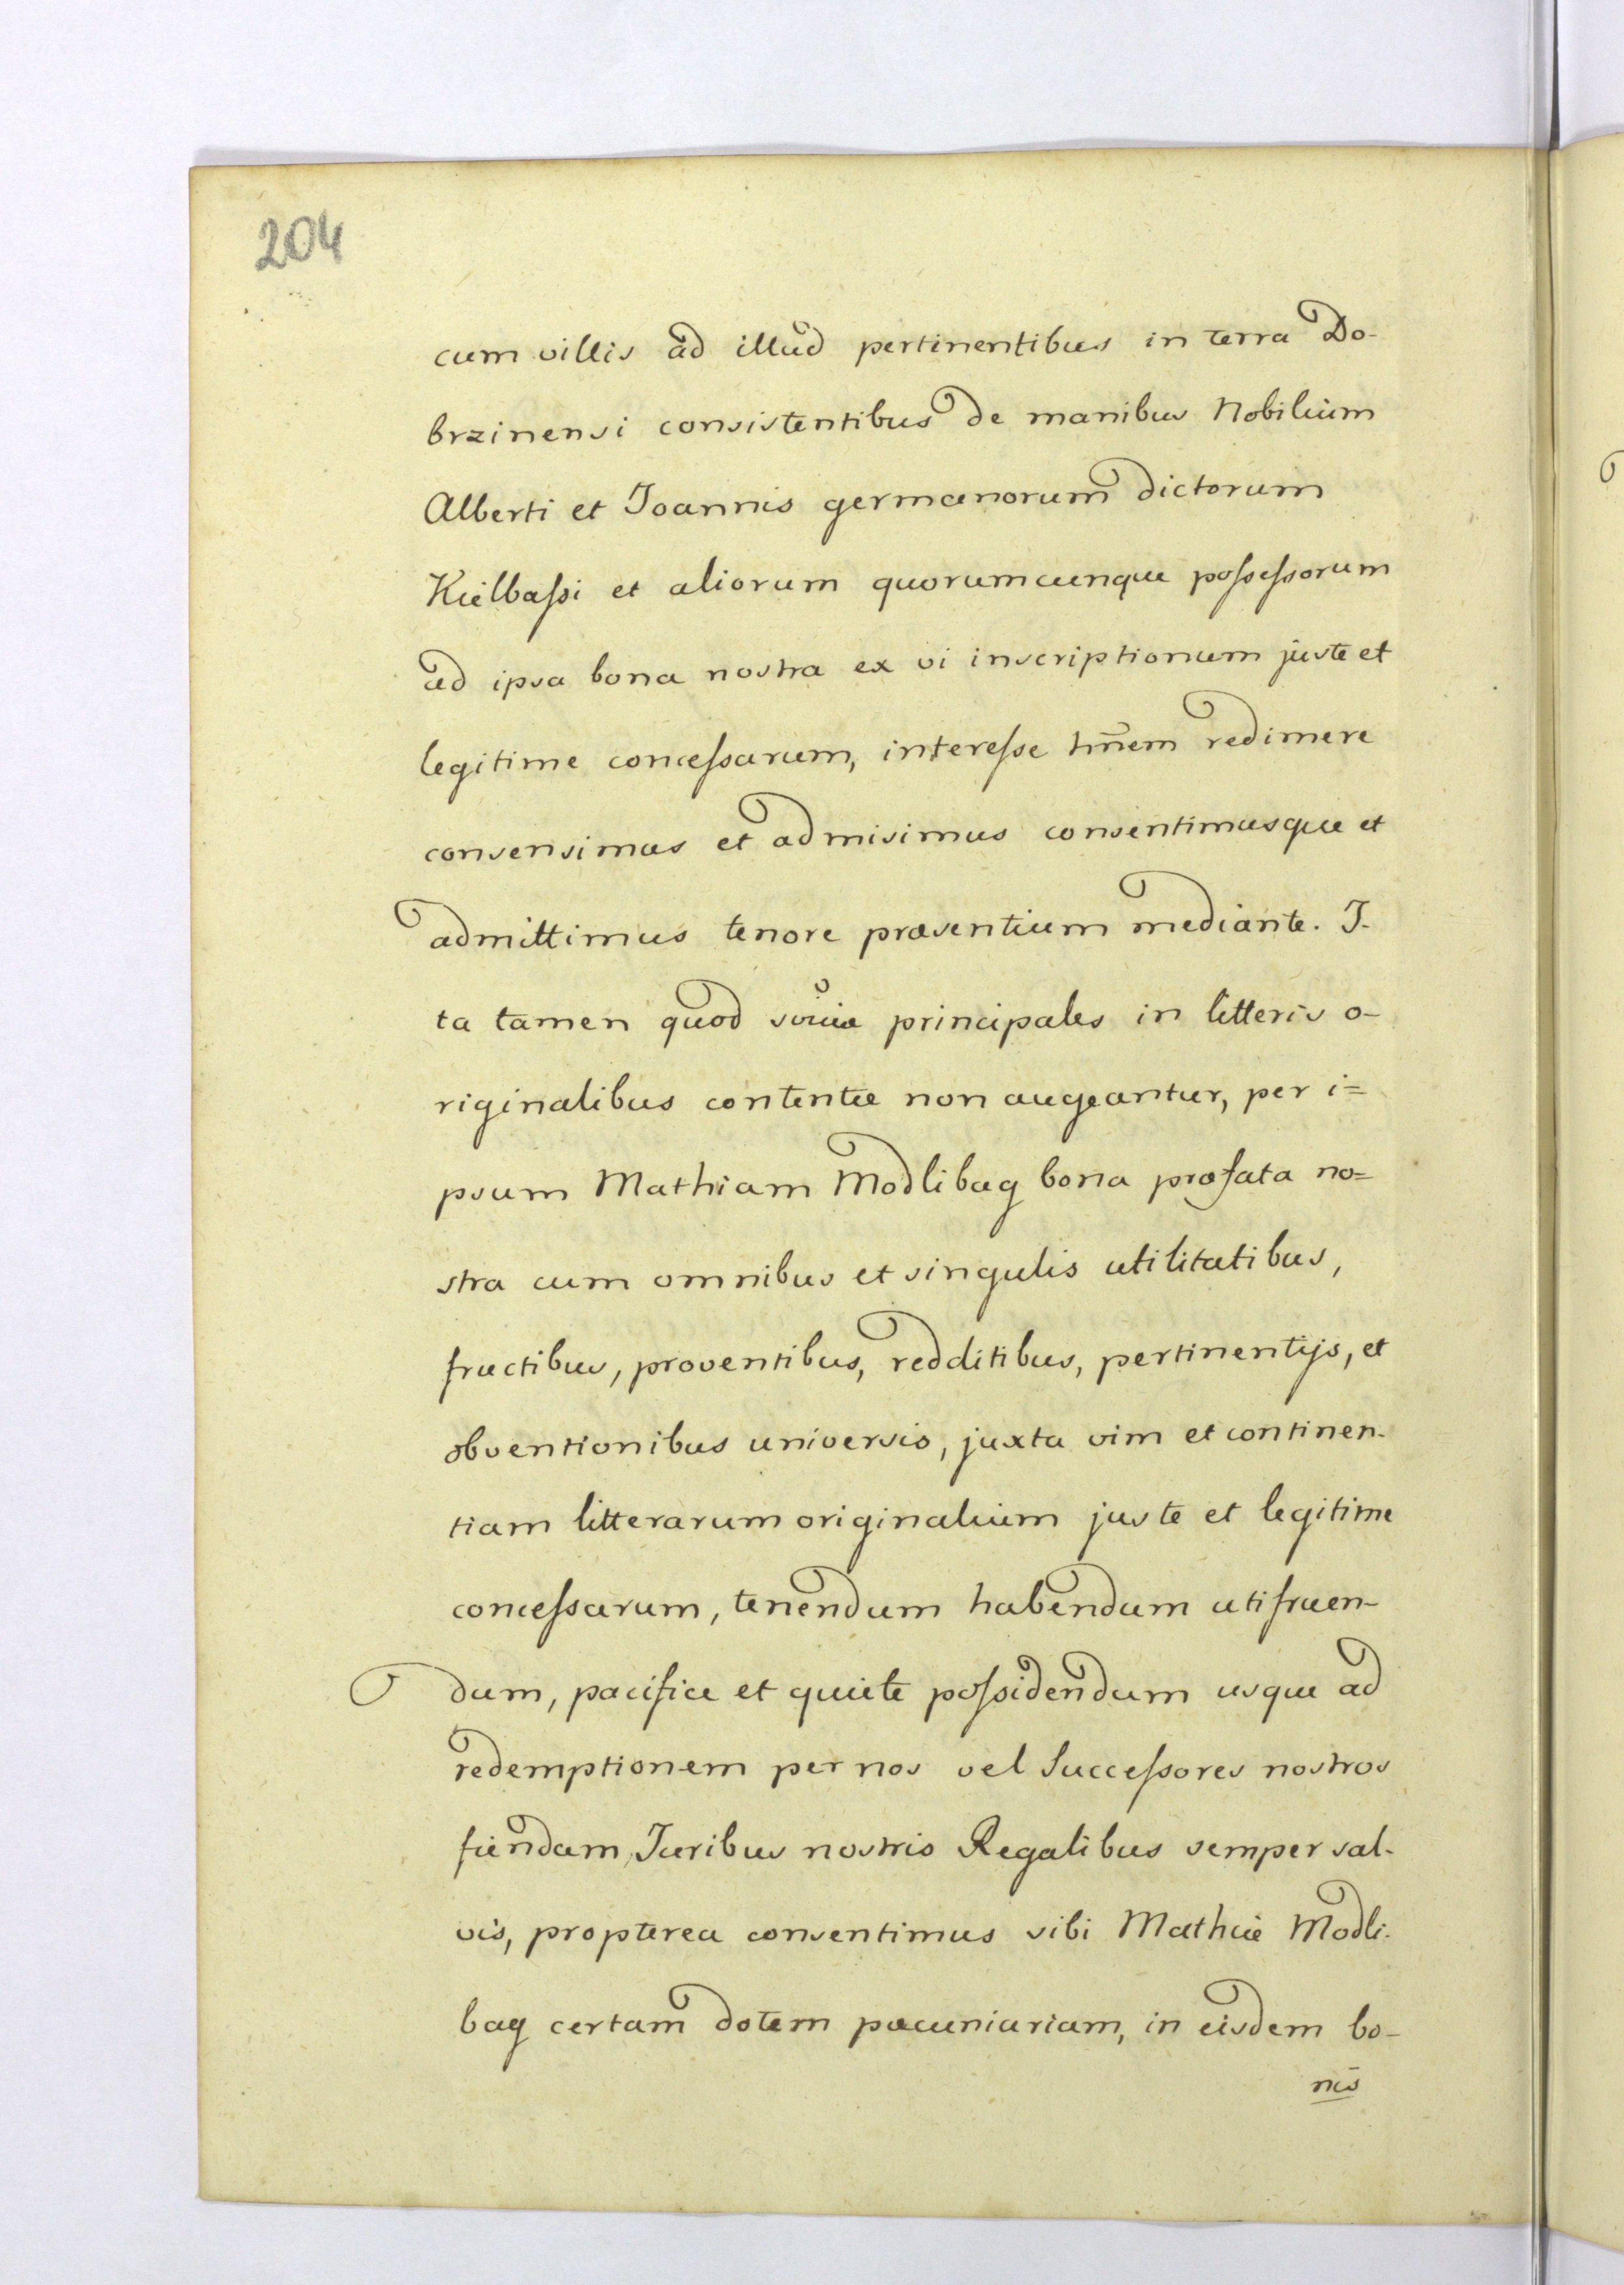 204
cum villis ad illud pertinentibus in terra Do-
brzinensi consistentibus de manibus Nobilium
Alberti et Joannis germanorum dictorum
Kielbaſsi et aliorum quorumcunque poſseſsorum
ad ipsa bona nostra ex vi inscriptionum juste et
legitime conceſsarum, intereſse hñem redimere
consensimus et admisimus consentimusque et
admittimus tenore præsentium mediante. I-
ta tamen quod principales in litteris o-
riginalibus contentæ non augeantur, per i=
psum Mathiam Modlibag bona præfata no=
stra cum omnibus et singulis utilitatibus,
fructibus, proventibus, redditibus, pertinentijs, et
obventionibus universis, juxta vim et continen-
tiam litterarum originalium juste et legitime
conceſsarum, tenendum habendum utifruen-
dum, pacifice et quiete poſsidendum usque ad
redemptionem per nos vel Succeſsores nostros
fiendam, Juribus nostris Regalibus semper sal-
vis, propterea consentimus sibi Mathiæ Modli-
bag certam dotem pæcuniariam, in eisdem bo-
nis